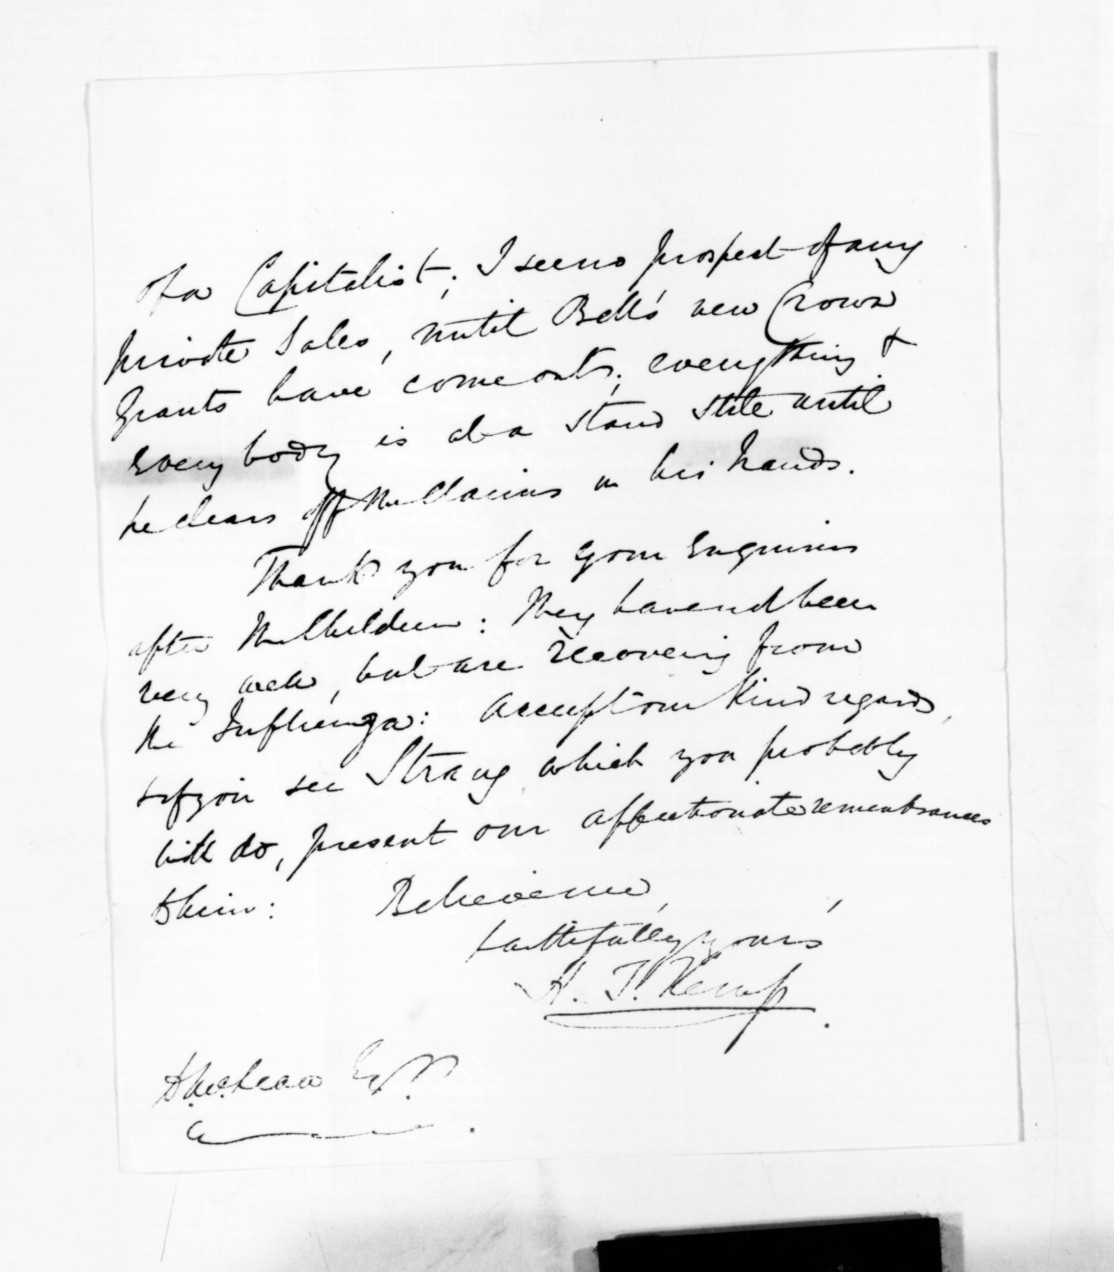 of a Capitalist; I see no prospect of any
private Sales, until Bell's new Crown
Grants have come out; everything &
every body is at a stand still until
he clears off the Claims in his hands.
Thank you for your Enquiries
after the Children: They have not been
very well, but are recovering from
the Influenza: accept our kind regards,
& if you see Strang, which you probably
will do, present our affectionate remembrances
to him: Believe me,
faithfully yours
H. T. Kemp.
D. McLean Esqr.